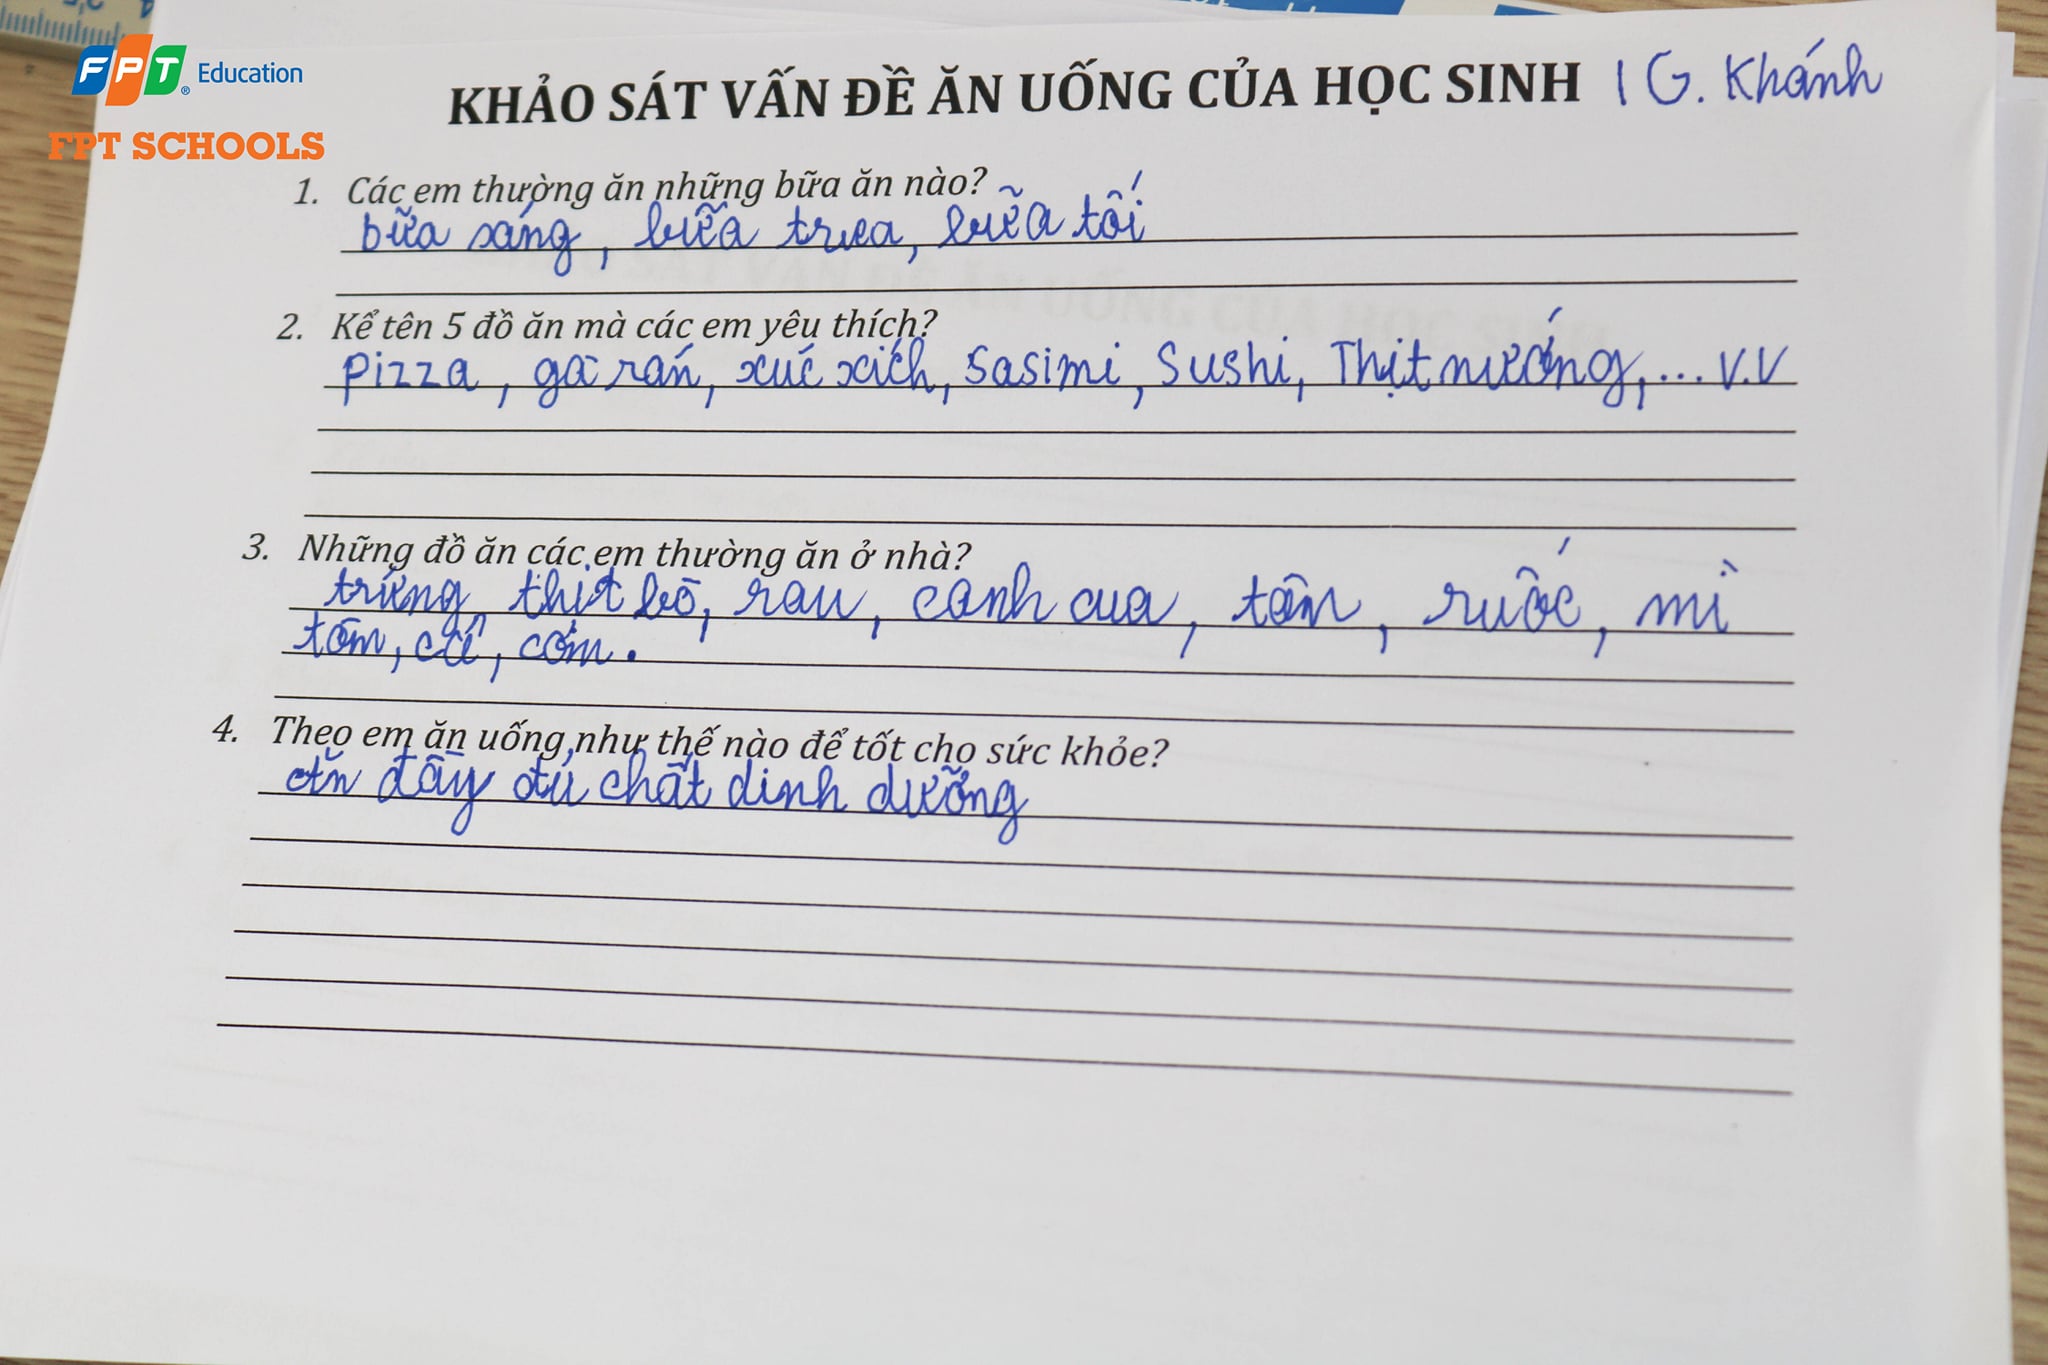 FPT Education
FPT SCHOOLS
KHẢO SÁT VẤN ĐỀ ĂN UỐNG CỦA HỌC SINH / G. Khánh
1. Các em thường ăn những bữa ăn nào?
bữa sáng, bữa trưa, bữa tối
2. Kể tên 5 đồ ăn mà các em yêu thích?
Pizza, gà rán, xúc xích, Sasimi, Sushi, Thịt nướng,... v.v
3. Những đồ ăn các em thường ăn ở nhà?
trứng, thịt bò, rau, canh cua, tôm, ruốc, mì
tôm, cá, cơm.
4. Theo em ăn uống như thế nào để tốt cho sức khỏe?
ăn đầy đủ chất dinh dưỡng